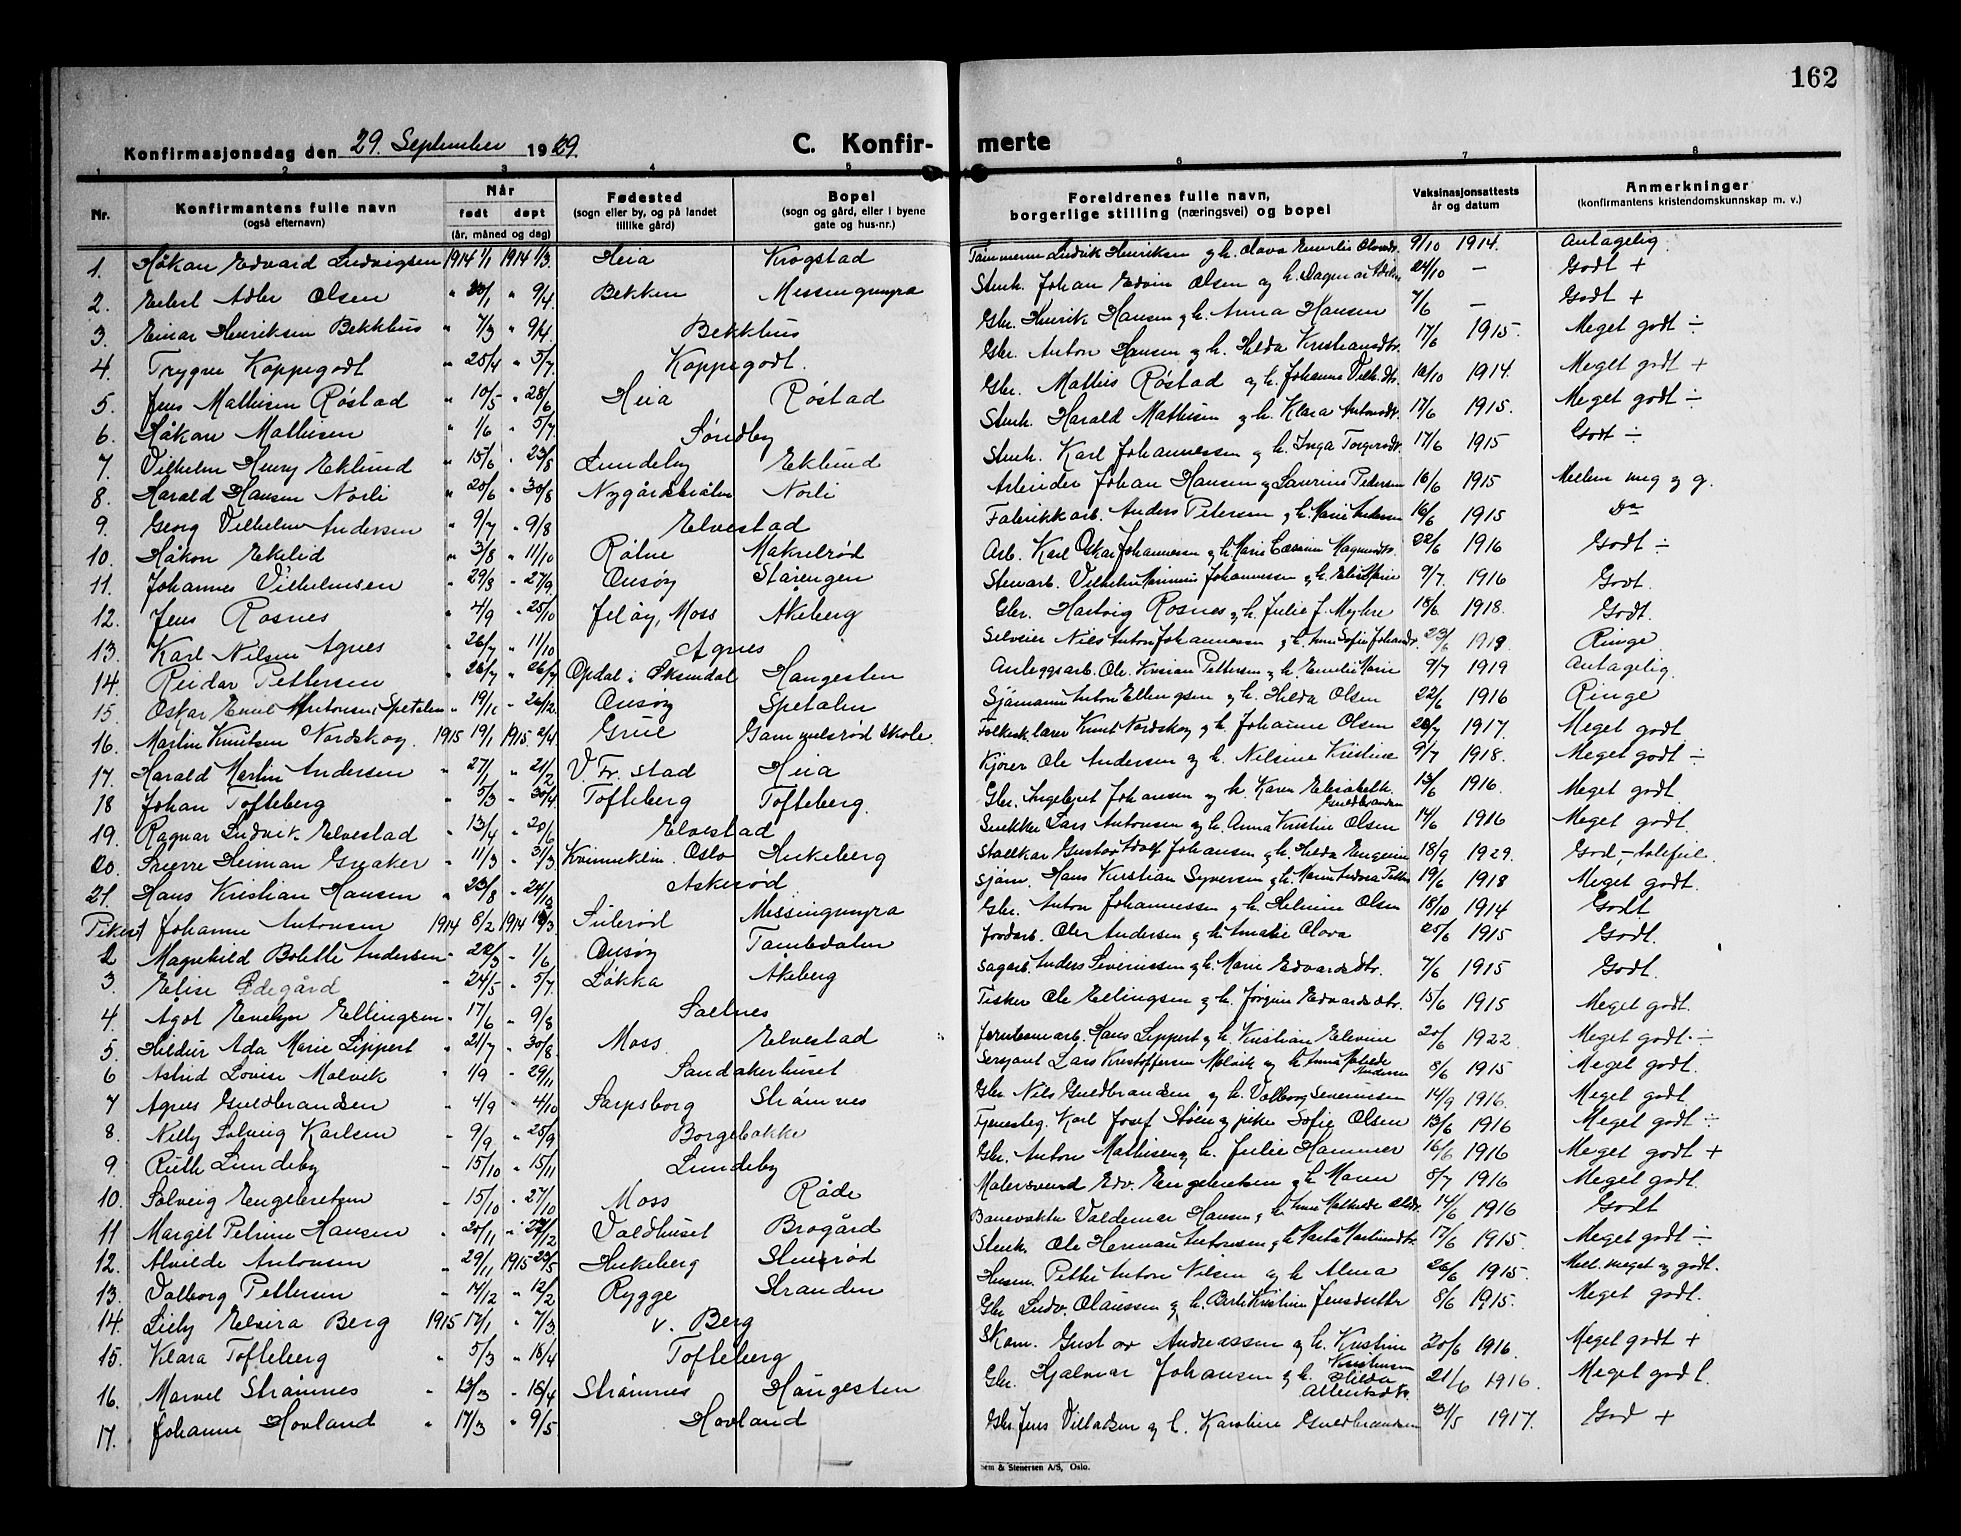 162
Konfirmasjonsdag den 29. September 1929. C. Konfir- merte
1 2 3 4 5 6 7 8
Nr. Konfirmantens fulle navn (også efternavn) Når født døpt (år, måned og dag) Fødested (sogn eller by, og på landet tillike gård) Bopel (sogn og gård, eller i byene gate og hus-nr.) Foreldrenes fulle navn, borgerlige stilling (næringsvei) og bopel Vaksinasjonsattests år og datum Anmerkninger (konfirmantens kristendomskunnskap m. v.)
1. Håkan Edvard Ludvigsen 1914 1/1 1914 1/3. Heia Krogstad Tømmerm. Ludvik Henriksen og h. Olava Emelie 9/10 1914. Antagelig.
2. Eilert Adler Olsen " 20/1 " 9/4 Bekken Missingmyra Stenh. Johan Edvin Olsen og h. Dagmar 24/10 — Godt +
3. Einar Henriksen Bekkhus " 7/3 " 9/4 Bekkhus Gbr. Henrik Hansen og h. Anna Hansen 7/6 — Godt +
4. Trygve Koppegodt " 25/4 " 5/7 Koppegodt. Gbr. Anton Hansen og h. Hilda Kristiansdtr. 17/6 1915. Meget godt ÷
5. Jens Mathisen Røstad " 10/5 " 28/6 Heia Røstad Gbr. Mathis Røstad og h. Johanne Vilh.dtr. 10/10 1914. Meget godt +
6. Håkan Mathisen " 1/6 " 5/7 Søndby Stenh. Harald Mathisen og h. Klara Antonsdtr. 17/6 1915. Meget godt ÷
7. Vilhelm Henry Eklund " 15/6 " 23/8 Lundeby Eklund Stenh. Karl Johannessen og h. Inga Torgersdtr. 17/6 1915 Godt ÷
8. Harald Hansen Norli " 20/6 " 30/8 Norli Arbeider Johan Hansen og Laurine Petersen 16/6 1915 Mellem meg og g.
9. Georg Vilhelm Andersen " 9/7 " 9/8 Elvestad Fabrikkarb. Anders Petersen og h. Marie Andersen 16/6 1915 Do
10. Håkon Ekelid " 3/8 " 11/10 Råde Makrelrød Arb. Karl Oskar Johannessen og h. Marie 22/6 1916 Godt ÷
11. Johannes Vilhelmsen " 29/8 " 27/9 Onsøy Starengen Stenarb. Vilhelm Johannessen og h. 9/7. 1916 Godt.
12. Jens Rosnes " 4/9 " 25/10 Jeløy, Moss Åkeberg Gbr. Hartvig Rosnes og h. Julie J. Myhre 18/6 1918. Godt.
13. Karl Nilsen Agnes " 26/7 " 11/10 Agnes Selveier Nils Anton Johannessen og h. Anne Sofie 23/6 1918 Ringe
14. Reidar Pettersen " 26/7 " 26/7 Opdal i Øksendal Haugesten Anleggsarb. Ole Kristian Pettersen og h. Emelie Marie 9/7 1919 Antagelig.
15. Oskar Emil Antonsen Spetalen " 19/11 " 26/12. Onsøy Spetalen Sjømann Anton Ellingsen og h. Hilda Olsen 22/6 1916 Ringe
16. Martin Knutsen Nordskog. 1915 19/1 1915. 2/4. Grue Gammelsrød skole. Folkesk.lærer Knut Nordskog og h. Johanne Olsen 20/7 1917. Meget godt
17. Harald Martin Andersen " 27/1 " 21/2 V. Fr. stad Heia Kjører Ole Andersen og h. Nilsine Kristine 9/7 1918. Meget godt ÷
18 Johan Tofteberg " 5/3 " 30/4 Tofteberg Tofteberg. Gbr. Ingebret Johansen og h. Karen Elisabeth Guldbrandsen 13/6 1916. Meget godt.
19. Ragnar Ludvik Elvestad " 13/4 " 20/6 Elvestad Snekker Lars Antonsen og h. Anna Kristine Olsen 14/6 1916 Meget godt.
20. Sverre Herman Greaker " 11/3 " 31/3 Kvinneklin. Oslo Hukeberg Stallkar Gustav Adolf Johansen og h. Hilda Eugenie 18/9 1929. God, - talefeil.
21. Hans Kristian Hansen " 23/8 " 24/12 Askerød Sjøm. Hans Kristian Syversen og h. Maren 19/6 1918 Meget godt.
Piker 1 Johanne Antonsen 1914 8/2 1914 Sulerød Missingmyra Gbr. Anton Johannessen og h. Helmine Olsen 18/10 1914 Godt
2 Magnhild Bolette Andersen - 22/3 - 1/6 Onsøy Tambdalen Jordarb. Ole Andersen og h. Amalie Olava 25/6 1915 Godt.
3. Elise Ødegård - 24/5 - 5/7 Løkka Åkeberg Sagarb. Anders Severinssen og h. Marie Edvardsdtr. 7/6 1915 Godt.
4. Ågot Evelyn Ellingsen - 17/6 " 9/8 Saltnes Fisker Ole Ellingsen og h. Jørgine Edvardsdtr. 15/6 1915 Meget godt.
5. Hildur Ada Marie Lippert " 21/7 " 30/8 Moss. Elvestad Jernbanearb. Hans Lippert og h. Kristiane Elevine 20/6 1922 Meget godt ÷
6 Astrid Lovise Malvik " 1/9 " 29/11 Sandakerhuset Sersjant Lars Kristoffersen Malvik og h. Anna Andersen 8/6 1915 Meget godt.
7 Agnes Guldbrandsen - 4/9 - 4/10 Sarpsborg Strømnes Gbr. Nils Guldbrandsen og h. Valborg Severinssen 14/9 1916. Meget godt.
8. Nelly Solveig Karlsen - 9/9 " 25/9 Borgebakke Tjenesteg. Karl Josef Støen og pike Sofie Olsen 13/6 1916 Meget godt ÷
9. Ruth Lundeby - 15/10 " 15/11 Lundeby Gbr. Anton Mathisen og h. Julie Hammer 16/6 1916 Meget godt +
10. Solveig Engebretsen - 15/10 - 27/10 Moss Råde Malersvend Edv. Engebretsen og h. Maren 8/7 1916 Meget godt.
11 Margit Petrine Hansen " 20/11 " 27/12 Valdhuset Brogård Banevokter Valdemar Hansen og h. Anne Mathilde 14/6 1916 Godt
12. Alvilde Antonsen - 29/11 1915 23/5 Hukeberg Stenrød Stenh. Ole Herman Antonsen og h. Marta Martinsdtr. 17/6 1915. Meget godt ÷
13. Valborg Pettersen - 14/12 " 12/2 Rygge Stranden Husm. Petter Anton Nilsen og h. Alma 26/6 1915. Mell. meget og godt.
14. Lilly Elvira Berg 1915 17/1 - 7/3. v. Berg Gbr. Ludv. Olaussen og h. Berte Kristine Jensdatter 8/6 1915. Meget godt.
15. Klara Tofteberg " 5/3 " 18/4 Tofteberg Skom. Gustav Andreassen og h. Kristine Kristensen 20/6 1916. Meget godt +
16. Marvel Strømnes " 13/3 - 18/4 Strømnes Haugesten Gbr. Hjalmar Johansen og h. Hilda Albertsdtr. 21/6 1916. Meget godt.
17. Johanne Hovland " 17/3 " 9/5 Hovland Gbr. Jens Villadsen og h. Karoline Guldbrandsen 31/5 1917. God +
sem & Stenersen A/S, Oslo.